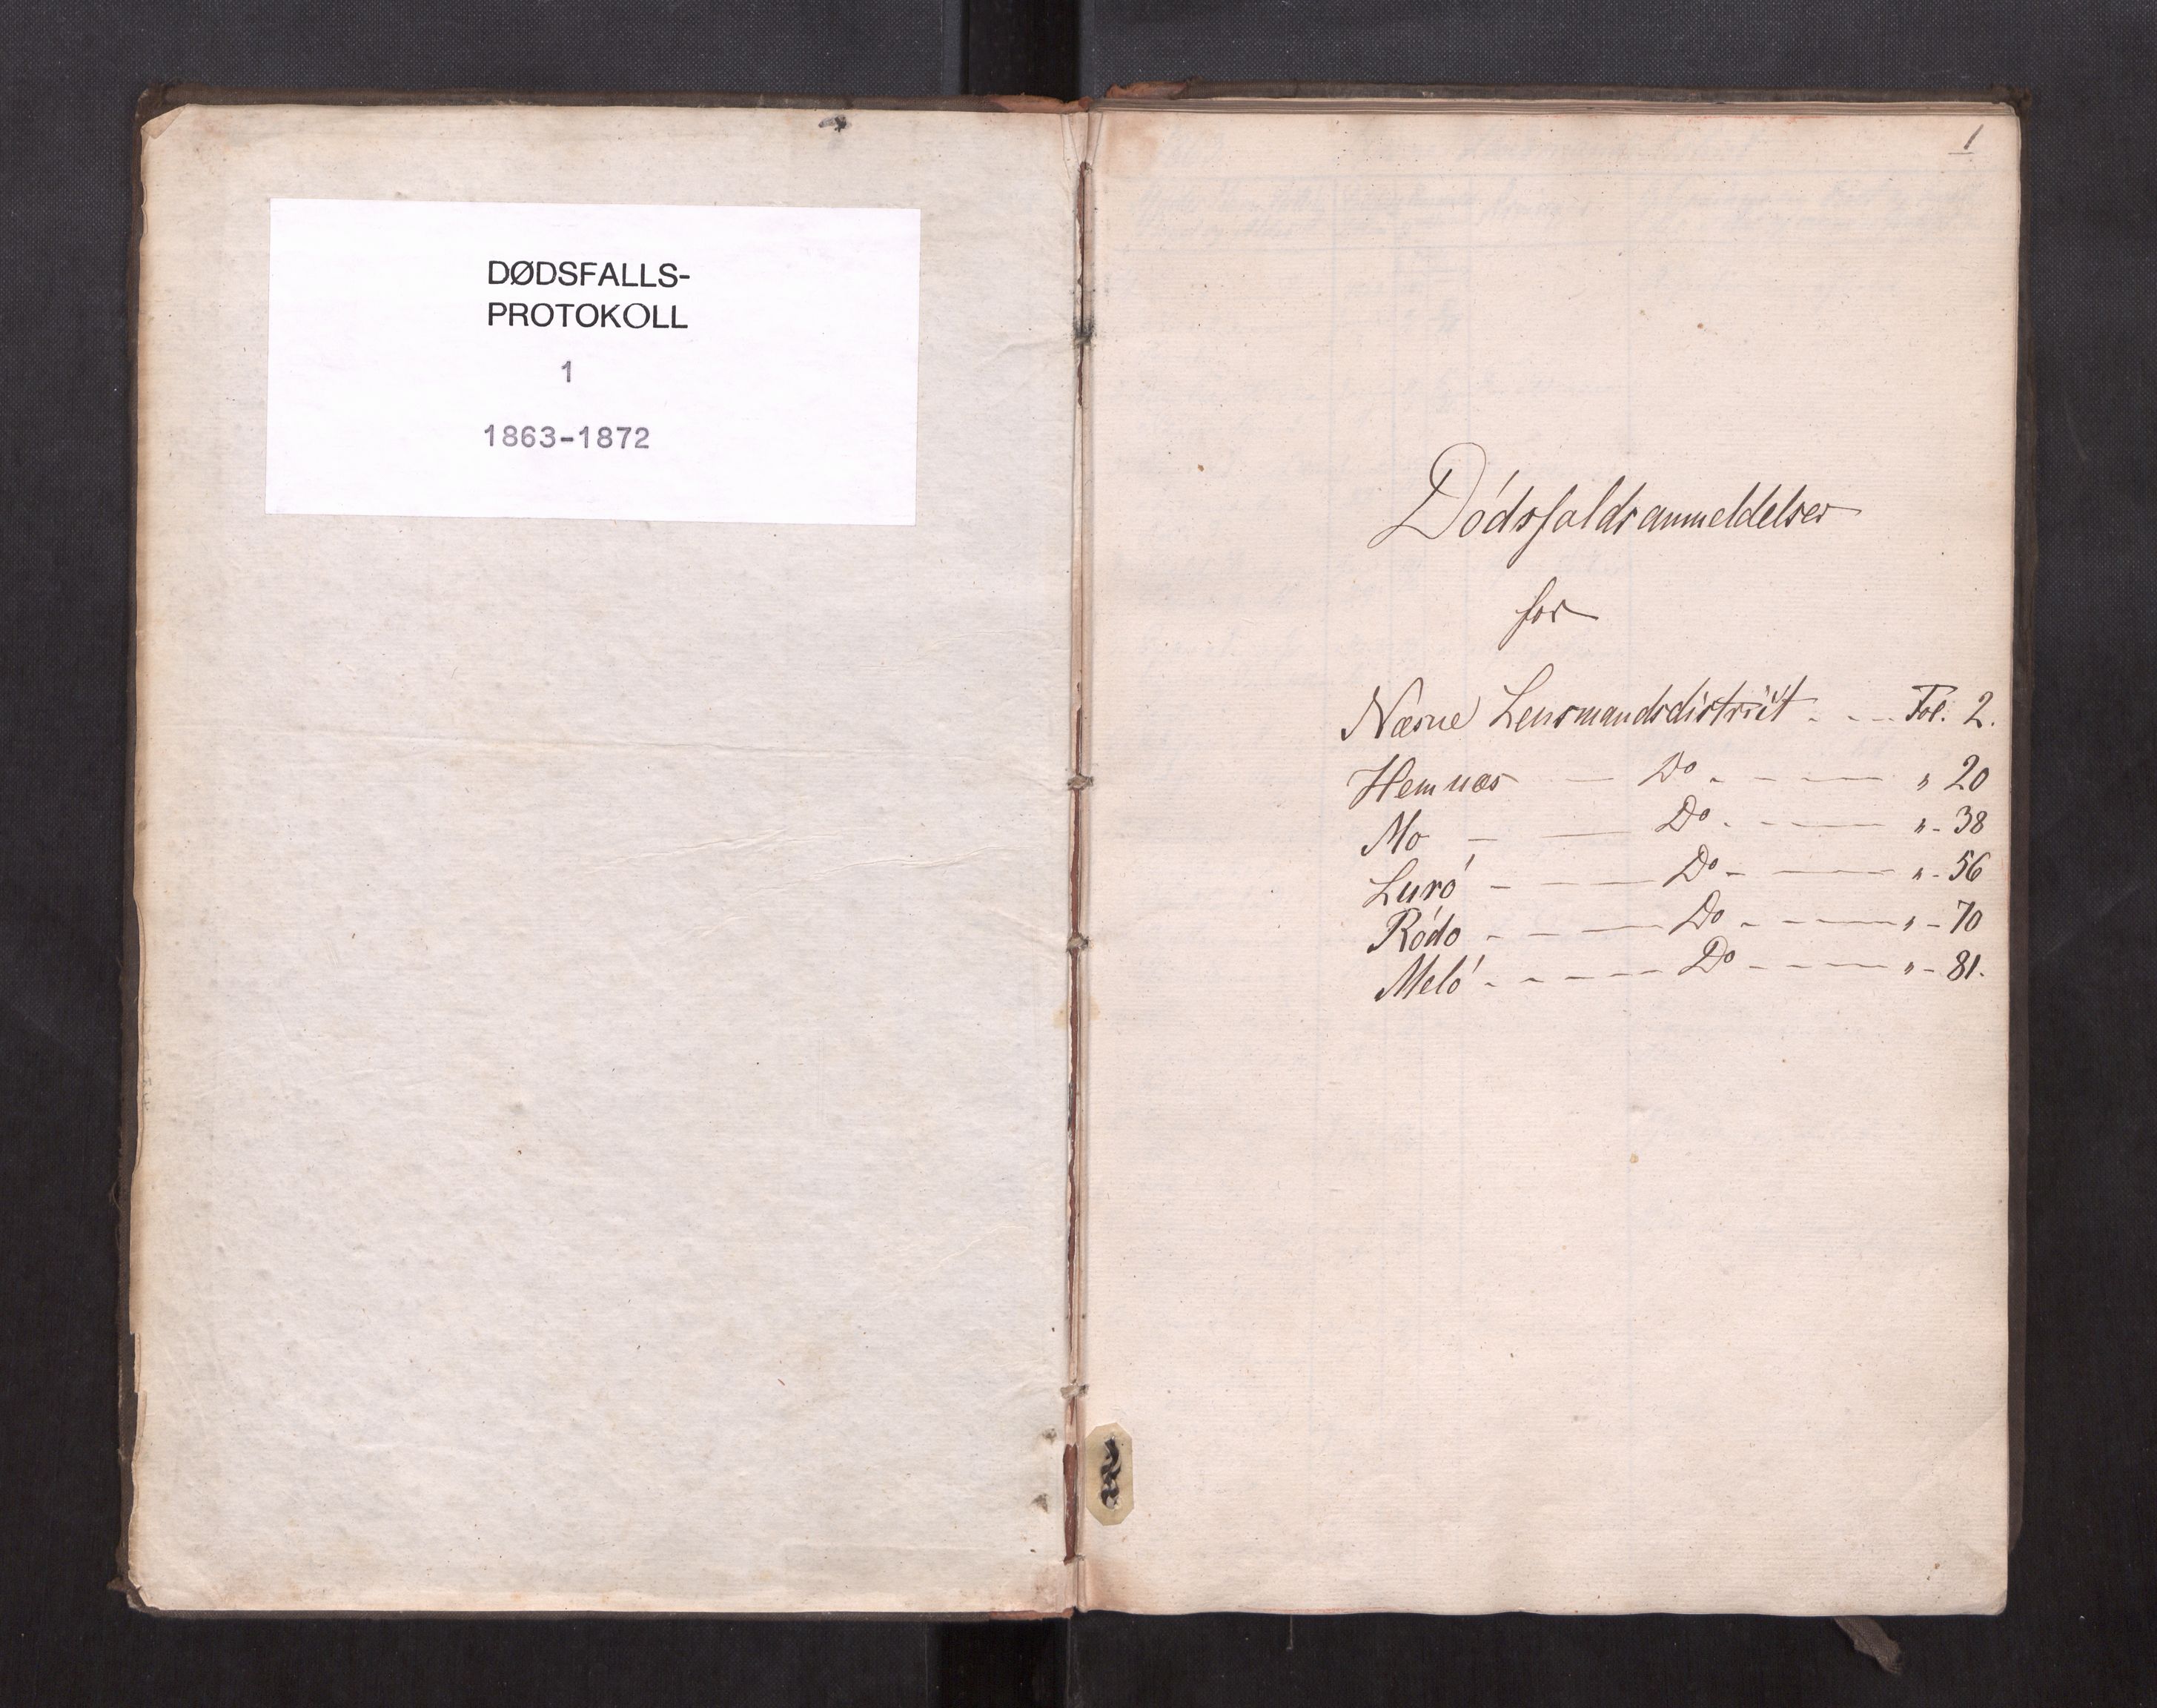 DØDSFALLS-
PROTOKOLL
1
1863-1872
1
Dódsfaldsanmeldelser
for
Næsne Lensmandsdistrict - - - Fol. 2.
Hemnæs - Do - - - " 20
Mo - - Do - - - " - 38
Luró - - Do - - " - 56
Ródo - - - Do - - - " - 70
Meló - - - - Do - - - " - 81.